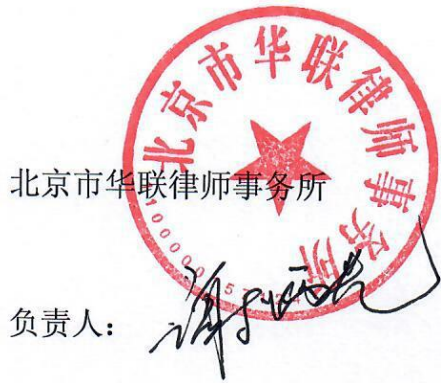 北京市华联律师事务所
北京市华联律师事务所
负责人：